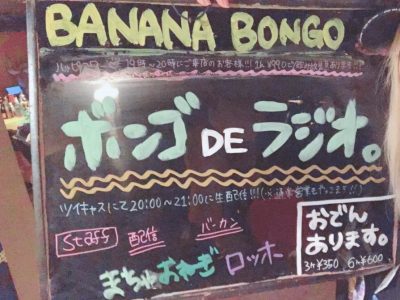 BANANA BONGO
ハッピーアワー 19時~20時にご来店のお客様!!!
ボンゴ DE ラジオ。
ツイキャスにて20:00~21:00に生配信!!!(※通常営業もやってます!!)
Staff 配信 バーカン
まちゅ おねぎ ロッホー
おでん
あります。
3ケ¥350 6ケ¥600